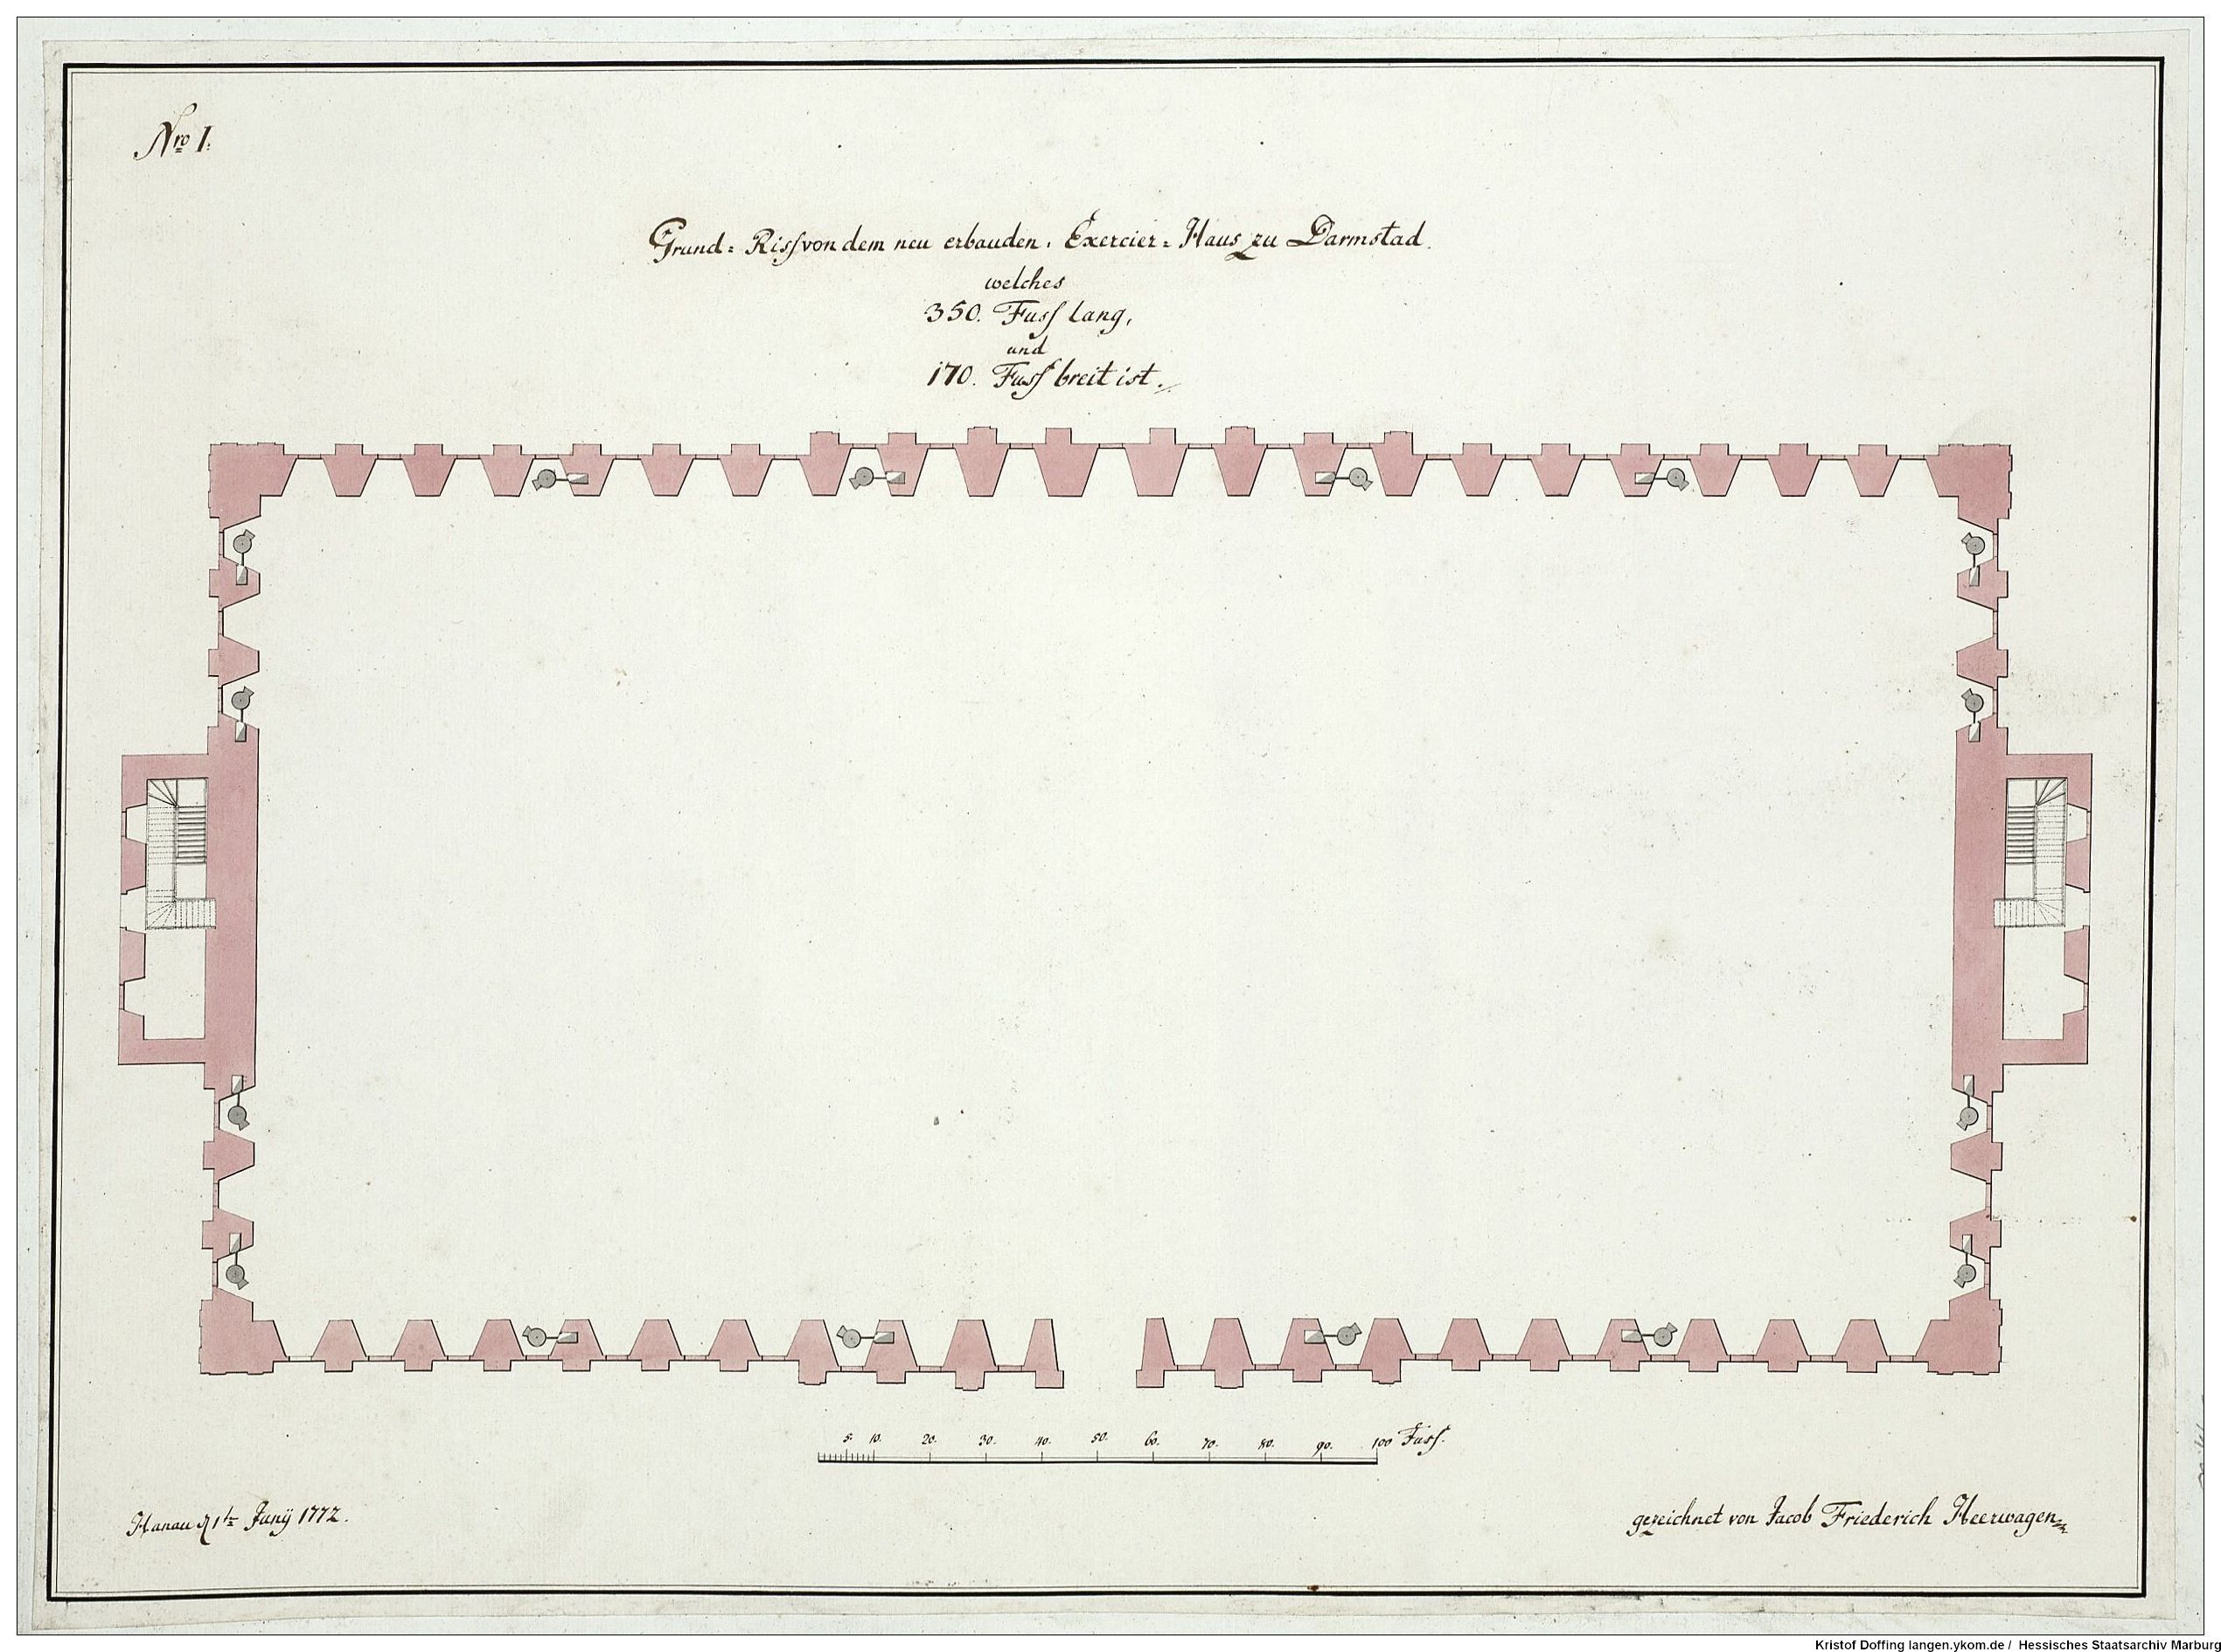 Nro I.
Grund= Riss von dem neu erbauden. Exercier= Haus zu Darmstad.
welches
350. Fuss lang,
und
170. Fuss breit ist.
5. 10. 20. 30. 40. 50. 60. 70. 80. 90. 100 Fuss.
Hanau 1te Junÿ 1772.
gezeichnet von Jacob Friederich Heerwagen
Kristof Doffing langen.ykom.de / Hessisches Staatsarchiv Marburg